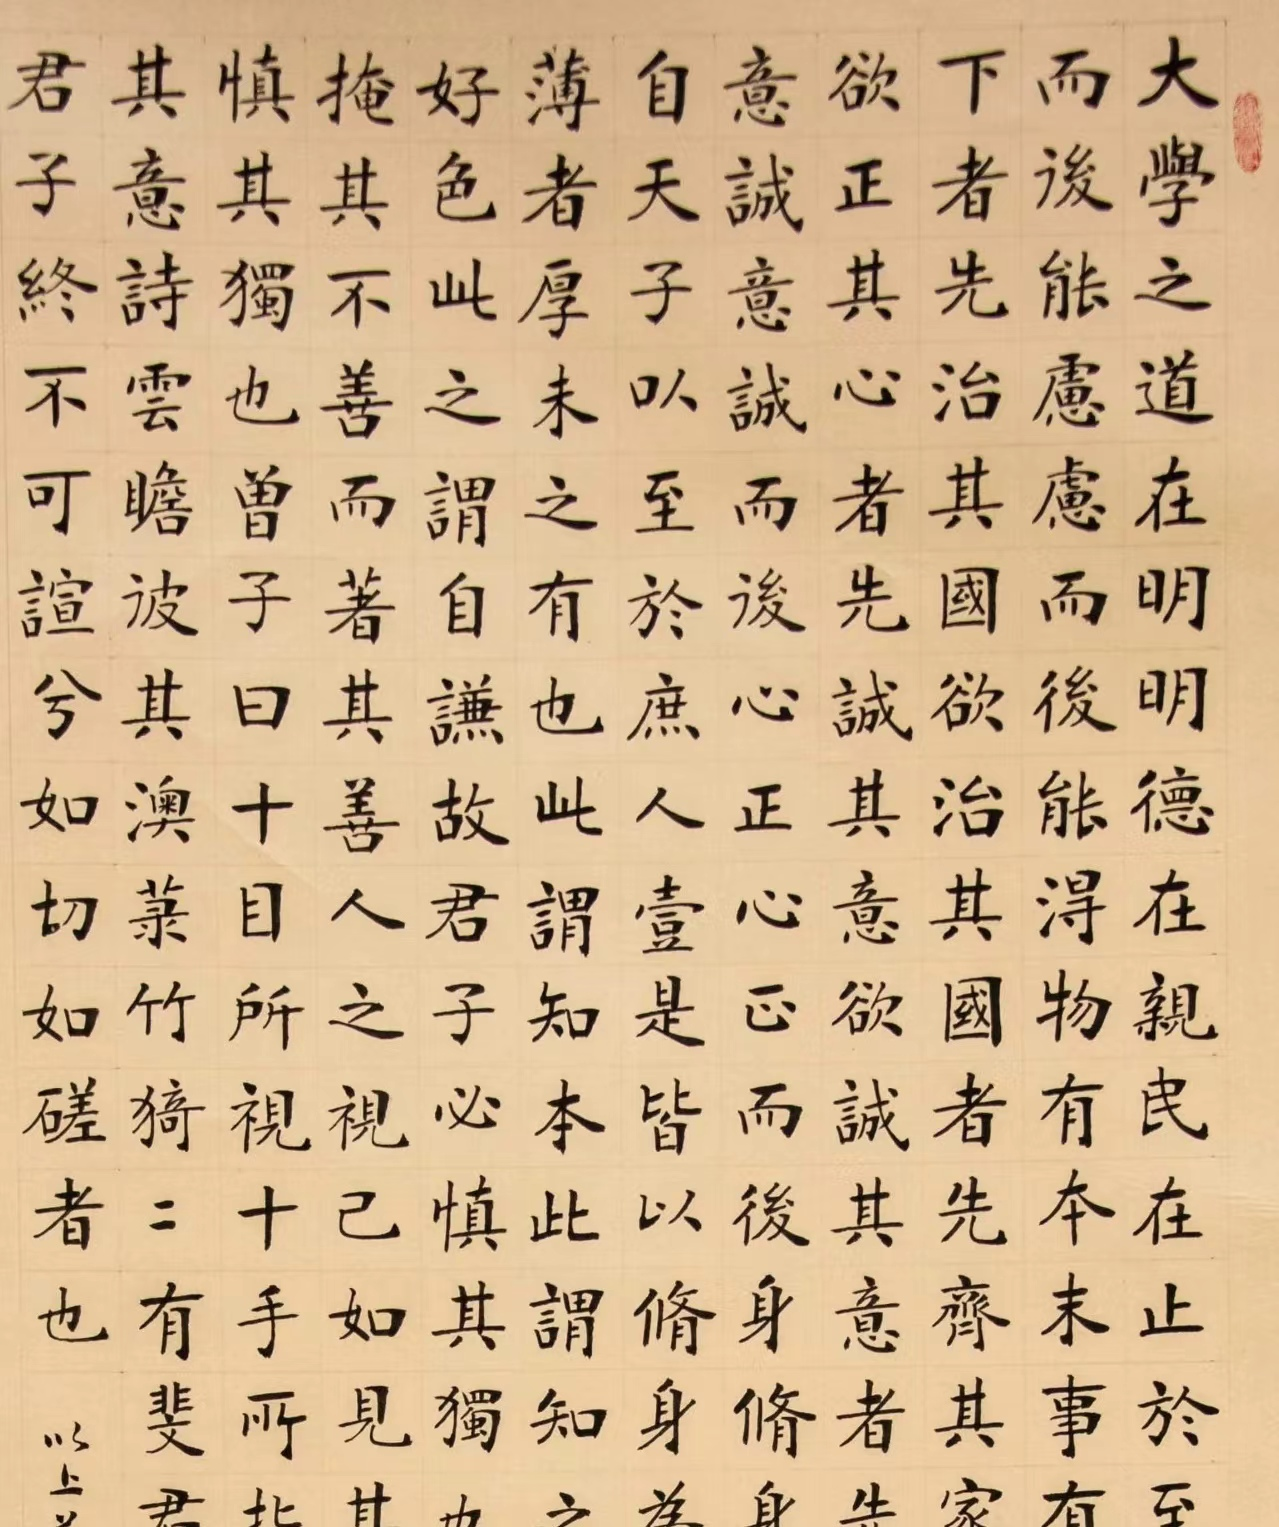 大學之道在明明德在親民在止於至
而後能慮慮而後能得物有本末事有
下者先治其國欲治其國者先齊其家
欲正其心者先誠其意欲誠其意者先
意誠意誠而後心正心正而後身脩身
自天子以至於庶人壹是皆以脩身為
薄者厚未之有也此謂知本此謂知之
好色此之謂自謙故君子必慎其獨也
掩其不善而著其善人之視己如見其
慎其獨也曾子曰十目所視十手所指
其意詩雲瞻彼其澳菉竹猗二有斐君
君子終不可諠兮如切如磋者也
以上